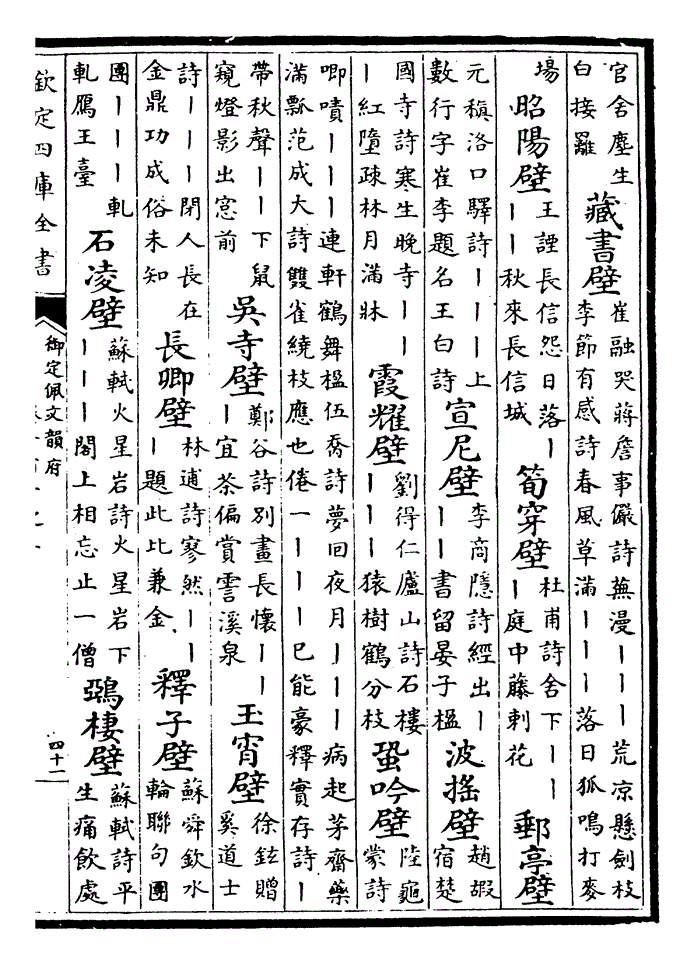 官舍塵生白接䍦 藏書壁 崔融哭蔣詹事儼詩蕪漫｜｜｜荒凉懸劍枝李節有感詩春風草滿｜｜｜落日狐鳴打麥
場 昭陽壁 王諲長信怨日落｜｜｜秋來長信城 筍穿壁 杜甫詩舍下｜｜｜庭中藤刺花 郵亭壁
元稹洛口驛詩｜｜｜上數行字崔李題名王白詩 宣尼壁 李商隱詩經出｜｜｜書留晏子楹 波搖壁 趙嘏宿楚
國寺詩寒生晚寺｜｜｜紅墮疎林月滿牀 霞耀壁 劉得仁廬山詩石樓｜｜｜猿樹鶴分枝 蛩吟壁 陸龜蒙詩
唧嘖｜｜｜連軒鶴舞楹伍喬詩夢回夜月｜｜｜病起茅齋藥滿瓢范成大詩雙雀繞枝應也倦一｜｜｜已能豪釋實存詩｜
帶秋聲｜｜下鼠窺燈影出窓前 吳寺壁 鄭谷詩別畫長懷｜｜｜宜茶偏賞霅溪泉 玉宵壁 徐鉉贈奚道士
詩｜｜｜閉人長在金鼎功成俗未知 長卿壁 林逋詩寥然｜｜｜題此比兼金 釋子壁 蘇舜欽水輪聯句團
團｜｜｜軋軋鴈王臺 石凌壁 蘇軾火星岩詩火星岩下｜｜｜閣上相忘止一僧 鵶棲壁 蘇軾詩平生痛飲處
欽定四庫全書
御定佩文韻府
四十二